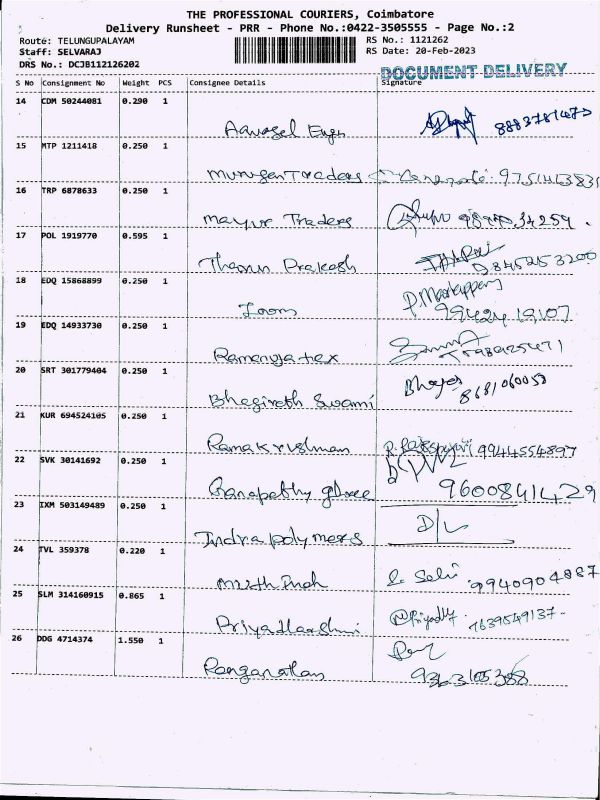 THE PROFESSIONAL COURIERS, Coimbatore
Delivery Runsheet - PRR - Phone No.:0422-3505555 - Page No.:2
Route: TELUNGUPALAYAM RS No.: 1121262
Staff: SELVARAJ RS Date: 20-Feb-2023
DRS No.: DCJB112126202
DOCUMENT DELIVERY
S No Consignment No Weight PCS Consignee Details Signature
14 CDM 50244081 0.290 1
15 MTP 1211418 0.250 1
Murugan Traders
16 TRP 6878633 0.250 1
Mayur Traders
17 POL 1919770 0.595 1
Tharun Prakash
18 EDQ 15868899 0.250 1
Loom
19 EDQ 14933730 0.250 1
Ramanuja tex
20 SRT 301779404 0.250 1
Bhagirath Swami
21 KUR 694524105 0.250 1
Ramakrishnan 9944554897
22 SVK 30141692 0.250 1
Ganapathy 9600841429
23 IXM 503149489 0.250 1
Indra polymers D/L
24 TVL 359378 0.220 1
9940904887
25 SLM 314160915 0.865 1
Priyadharshni 7639549137
26 DDG 4714374 1.550 1
Ranganathan